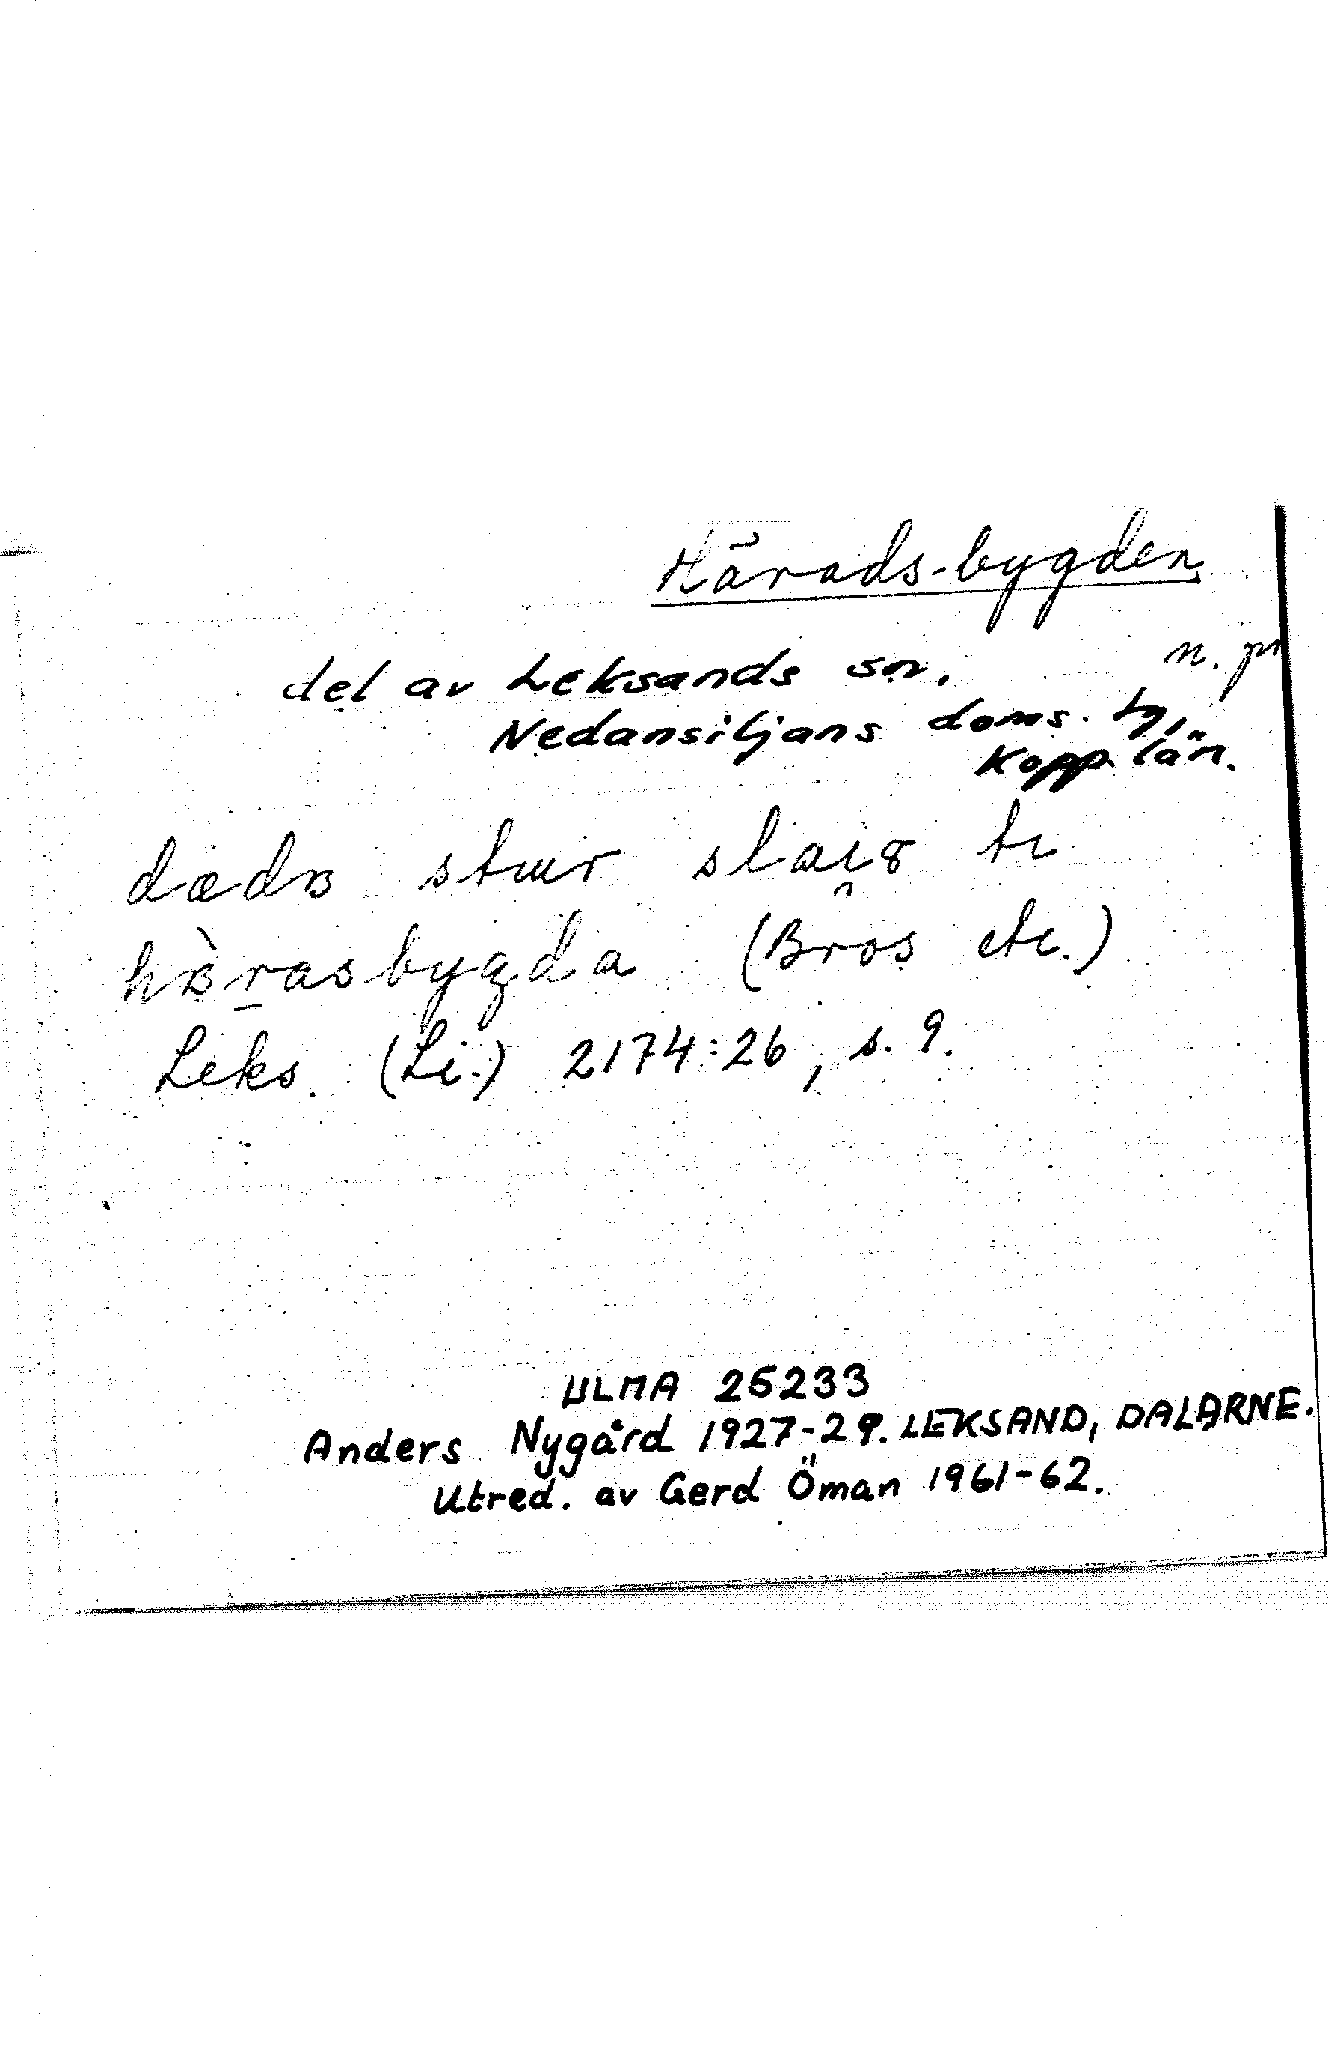 Härads-bygden
n. pr
del av Leksands sn.
Nedansiljans doms. tg,
Kopp. län.
stɯr ti
(Bros etc.)
Leks. (Li.) 2174:26, s. 9.
ULMA 25233
Anders Nygård 1927-29. LEKSAND, DALARNE.
Utred. av Gerd Öman 1961-62.